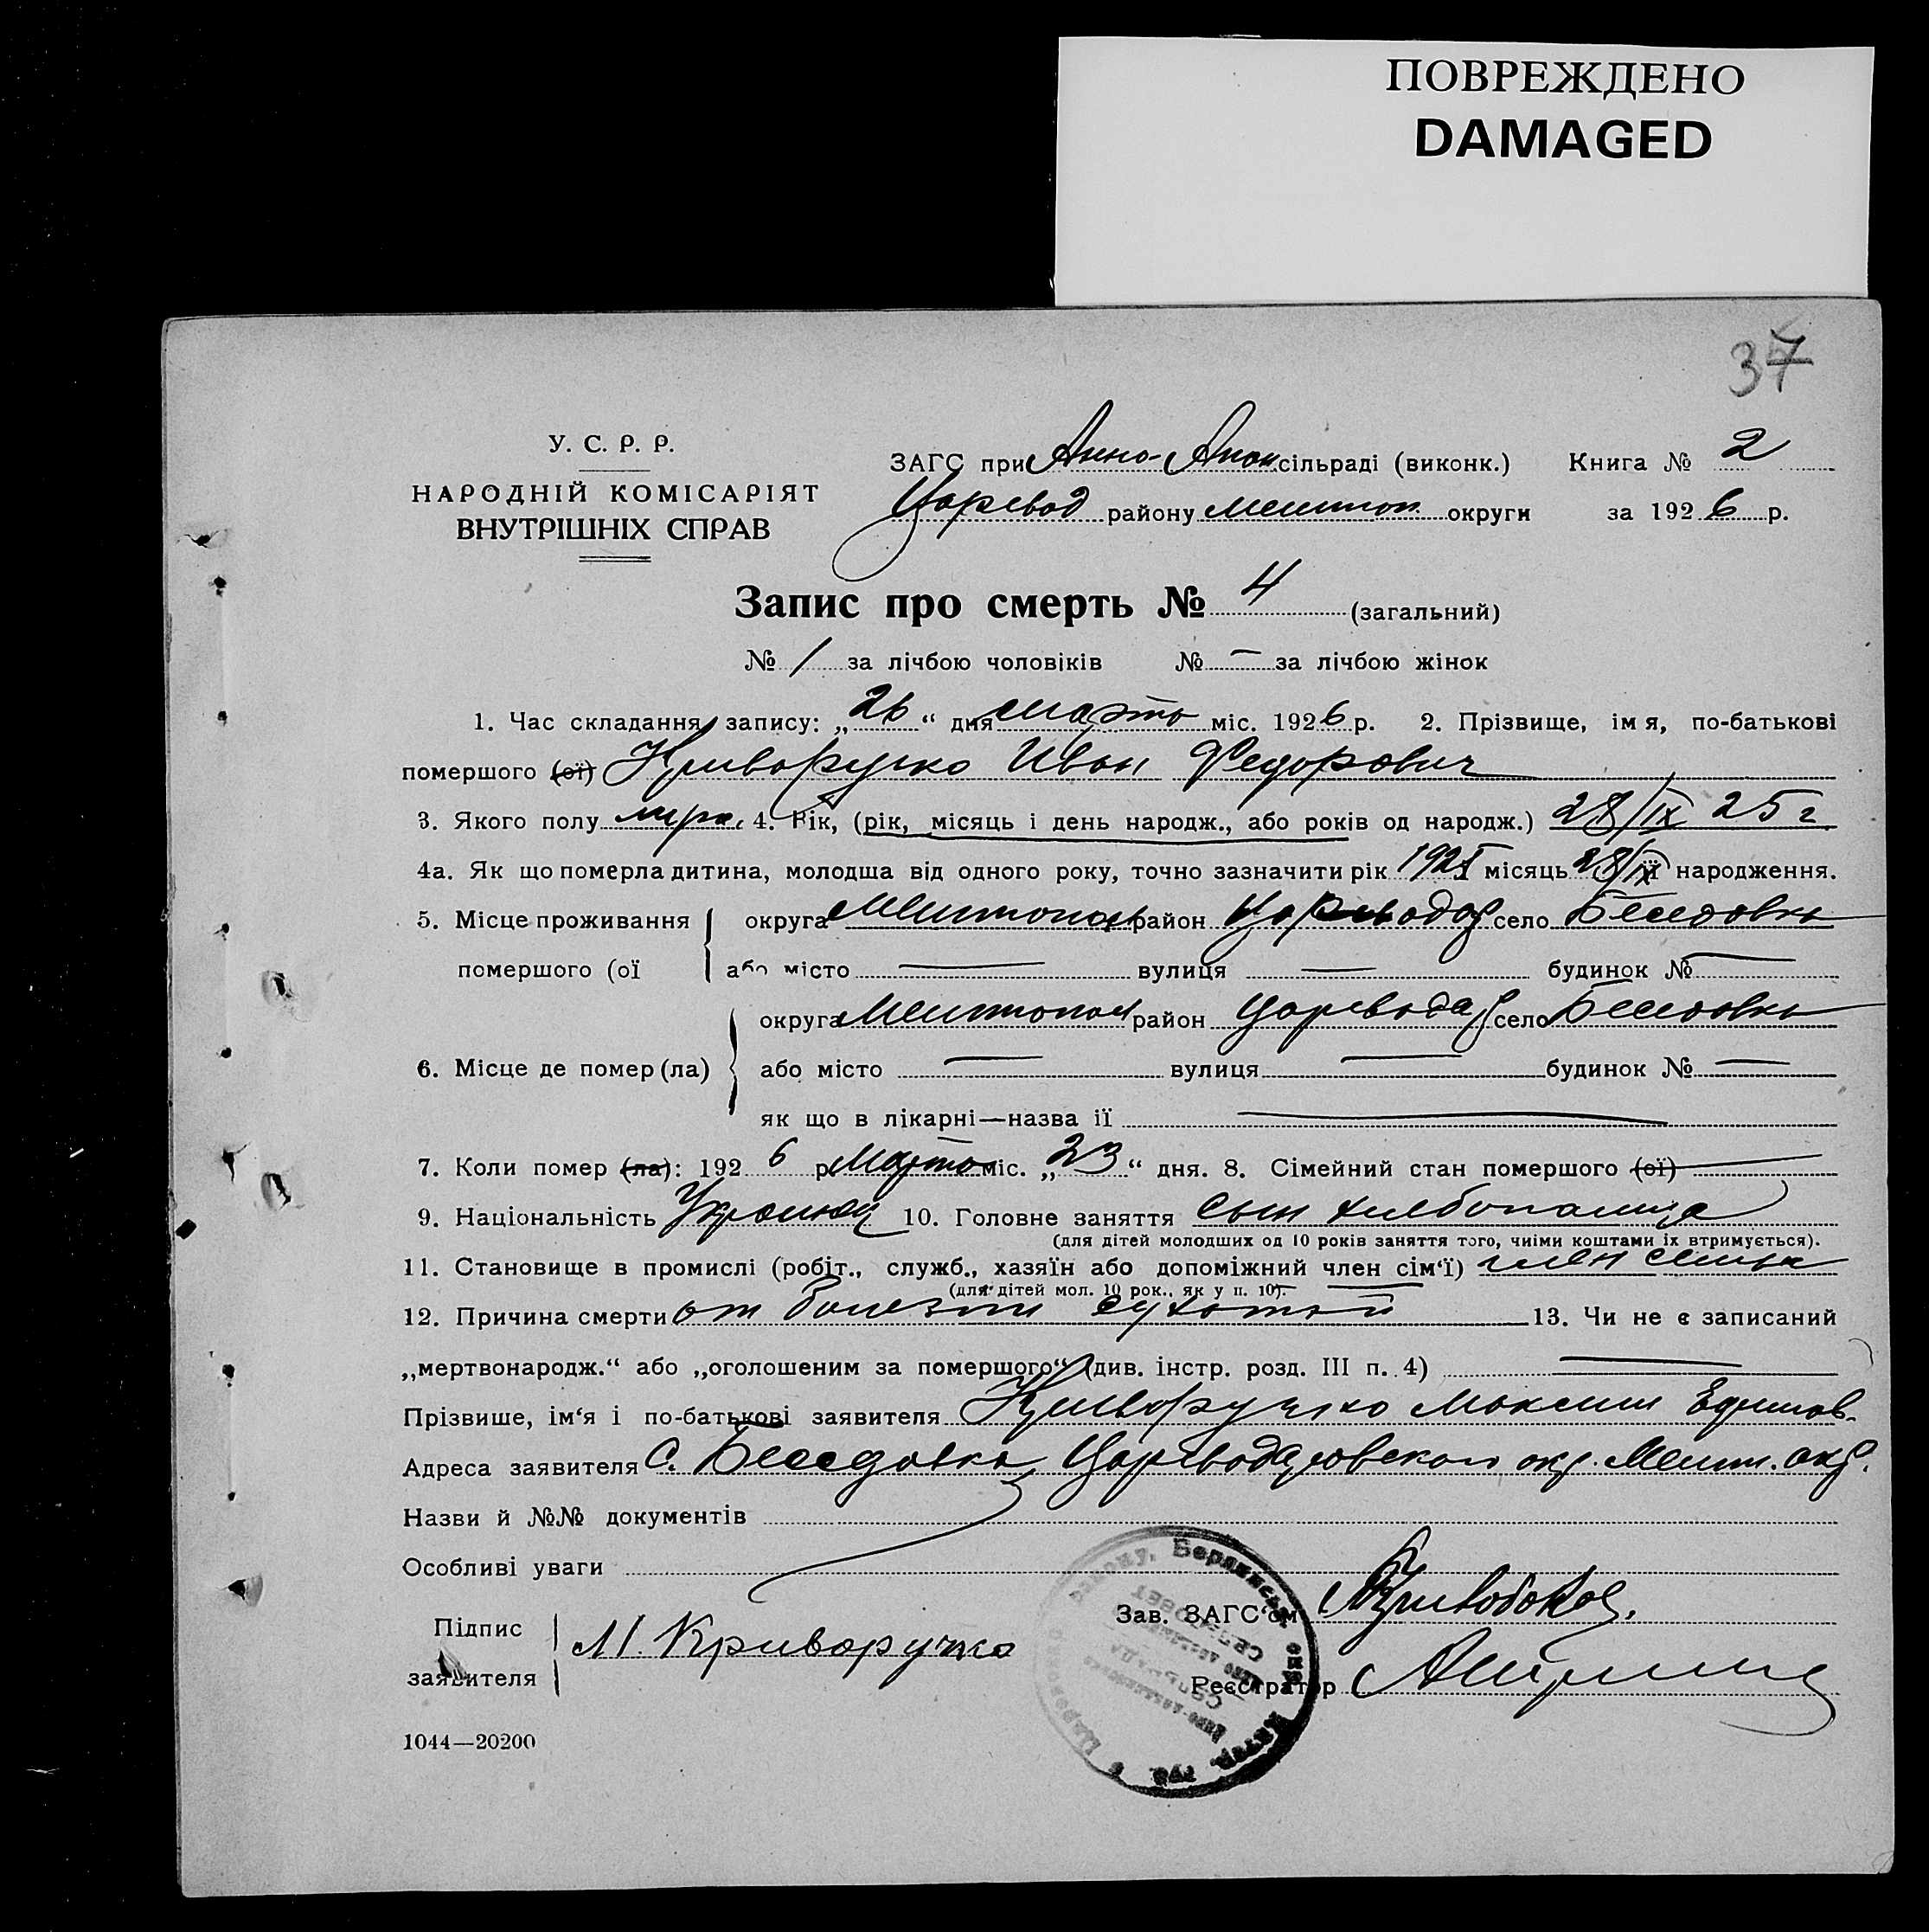 ПОВРЕЖДЕНО
DAMAGED
37
У. С. Р. Р.
НАРОДНІЙ КОМІСАРІЯТ
ВНУТРІШНІХ СПРАВ
ЗАГС при Анно-Апон сільраді (виконк.) Книга № 2
Царевод району Мелитоп. округи за 1926 р.
Запис про смерть № 4 (загальний)
№ 1 за лічбою чоловіків № — за лічбою жінок
1. Час складання запису: „26“ дня марта міс. 1926 р. 2. Прізвище, імя, по-батькові
помершого (ої) Криворучко Иван Федорович
3. Якого полу 4. Вік, (рік, місяць і день народж., або років од народж.) 28/IX 25 г.
4а. Як що померла дитина, молодша від одного року, точно зазначити рік 1925 місяць 28/IX народження.
5. Місце проживання округа Мелитопол район Царевода село Беседовка
помершого (ої або місто — вулиця — будинок № —
округа Мелитопол район Царевода село Беседовка
6. Місце де помер (ла) або місто — вулиця — будинок № —
як що в лікарні—назва ії —
7. Коли помер (ла): 1926 р. Марта міс. „23“ дня. 8. Сімейний стан помершого (ої) —
9. Національність Украинец 10. Головне заняття сын хлебопашца
(для дітей молодших од 10 років заняття того, чиіми коштами іх втримується).
11. Становище в промислі (робіт., служб., хазяїн або допоміжний член сім‘ї) член семьи
(для дітей мол. 10 рок., як у п. 10).
12. Причина смерти от болезни сухотой 13. Чи не є записаний
„мертвонародж.“ або „оголошеним за помершого“ (див. інстр. розд. III п. 4) —
Прізвише, ім‘я і по-батькові заявителя Криворучко Максим Ефимов.
Адреса заявителя с. Беседовка Царевода окр.
Назви й №№ документів
Особливі уваги
Підпис заявителя М. Криворучко
Зав. ЗАГС‘ом
Реєстратор
1044—20200